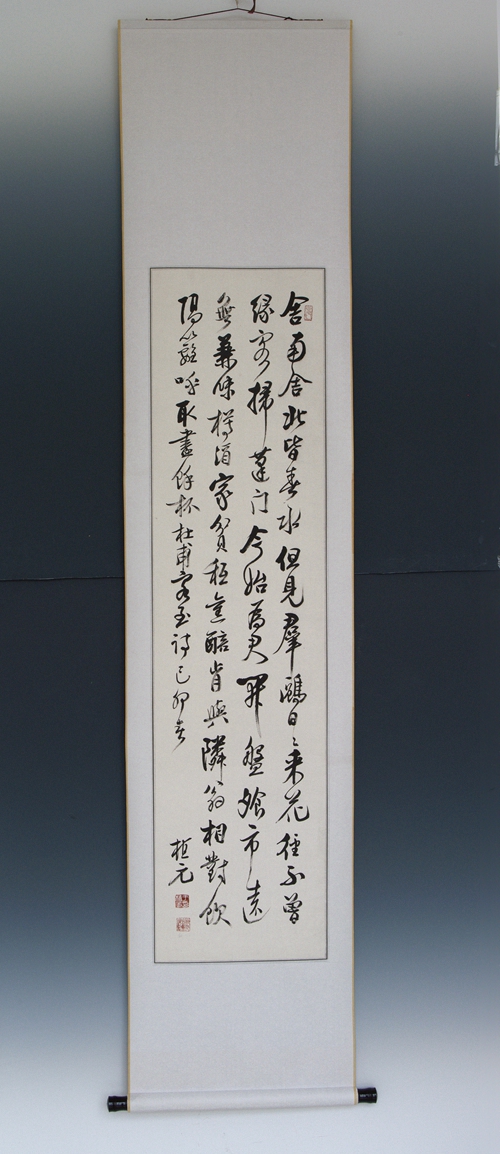 舍南舍北皆春水但見羣鷗日〻來花徑不曾
緣客掃蓬门今始為君開盤飧市遠
無兼味樽酒家貧秪舊醅肯與隣翁相對飲
隔籬呼取盡餘杯杜甫客至詩己卯春
植元